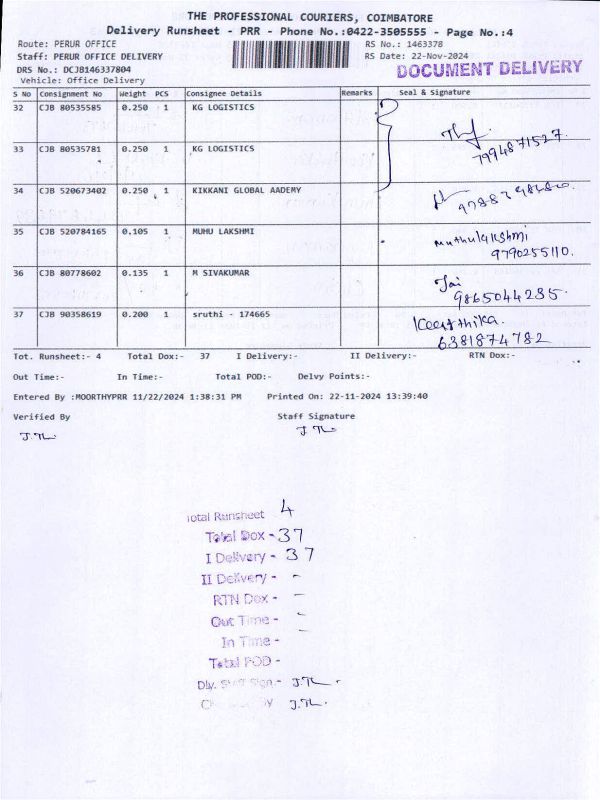 THE PROFESSIONAL COURIERS, COIMBATORE
Delivery Runsheet - PRR - Phone No.:0422-3505555 - Page No.:4
Route: PERUR OFFICE RS No.: 1463378
Staff: PERUR OFFICE DELIVERY RS Date: 22-Nov-2024
DRS No.: DCJB146337804 DOCUMENT DELIVERY
Vehicle: Office Delivery
S No Consignment No Weight PCS Consignee Details Remarks Seal & signature
32 CJB 80535585 0.250 1 KG LOGISTICS
33 CJB 80535781 0.250 1 KG LOGISTICS
7994871527
34 CJB 520673402 0.250 1 KIKKANI GLOBAL AADEMY
35 CJB 520784165 0.105 1 MUHU LAKSHMI Muthulakshmi
9790255110.
36 CJB 80778602 0.135 1 M SIVAKUMAR Jai
9865044235.
37 CJB 90358619 0.200 1 sruthi - 174665 Keerthika.
6381874782
Tot. Runsheet:- 4 Total Dox:- 37 I Delivery:- II Delivery:- RTN Dox:-
Out Time:- In Time:- Total POD:- Delvy Points:-
Entered By :MOORTHYPRR 11/22/2024 1:38:31 PM Printed On: 22-11-2024 13:39:40
Verified By Staff Signature
Total Runsheet 4
Total Dox - 37
I Delivery - 37
II Delivery - -
RTN Dox - -
Out Time - -
In Time -
Total POD -
Dly. Staff Sign -